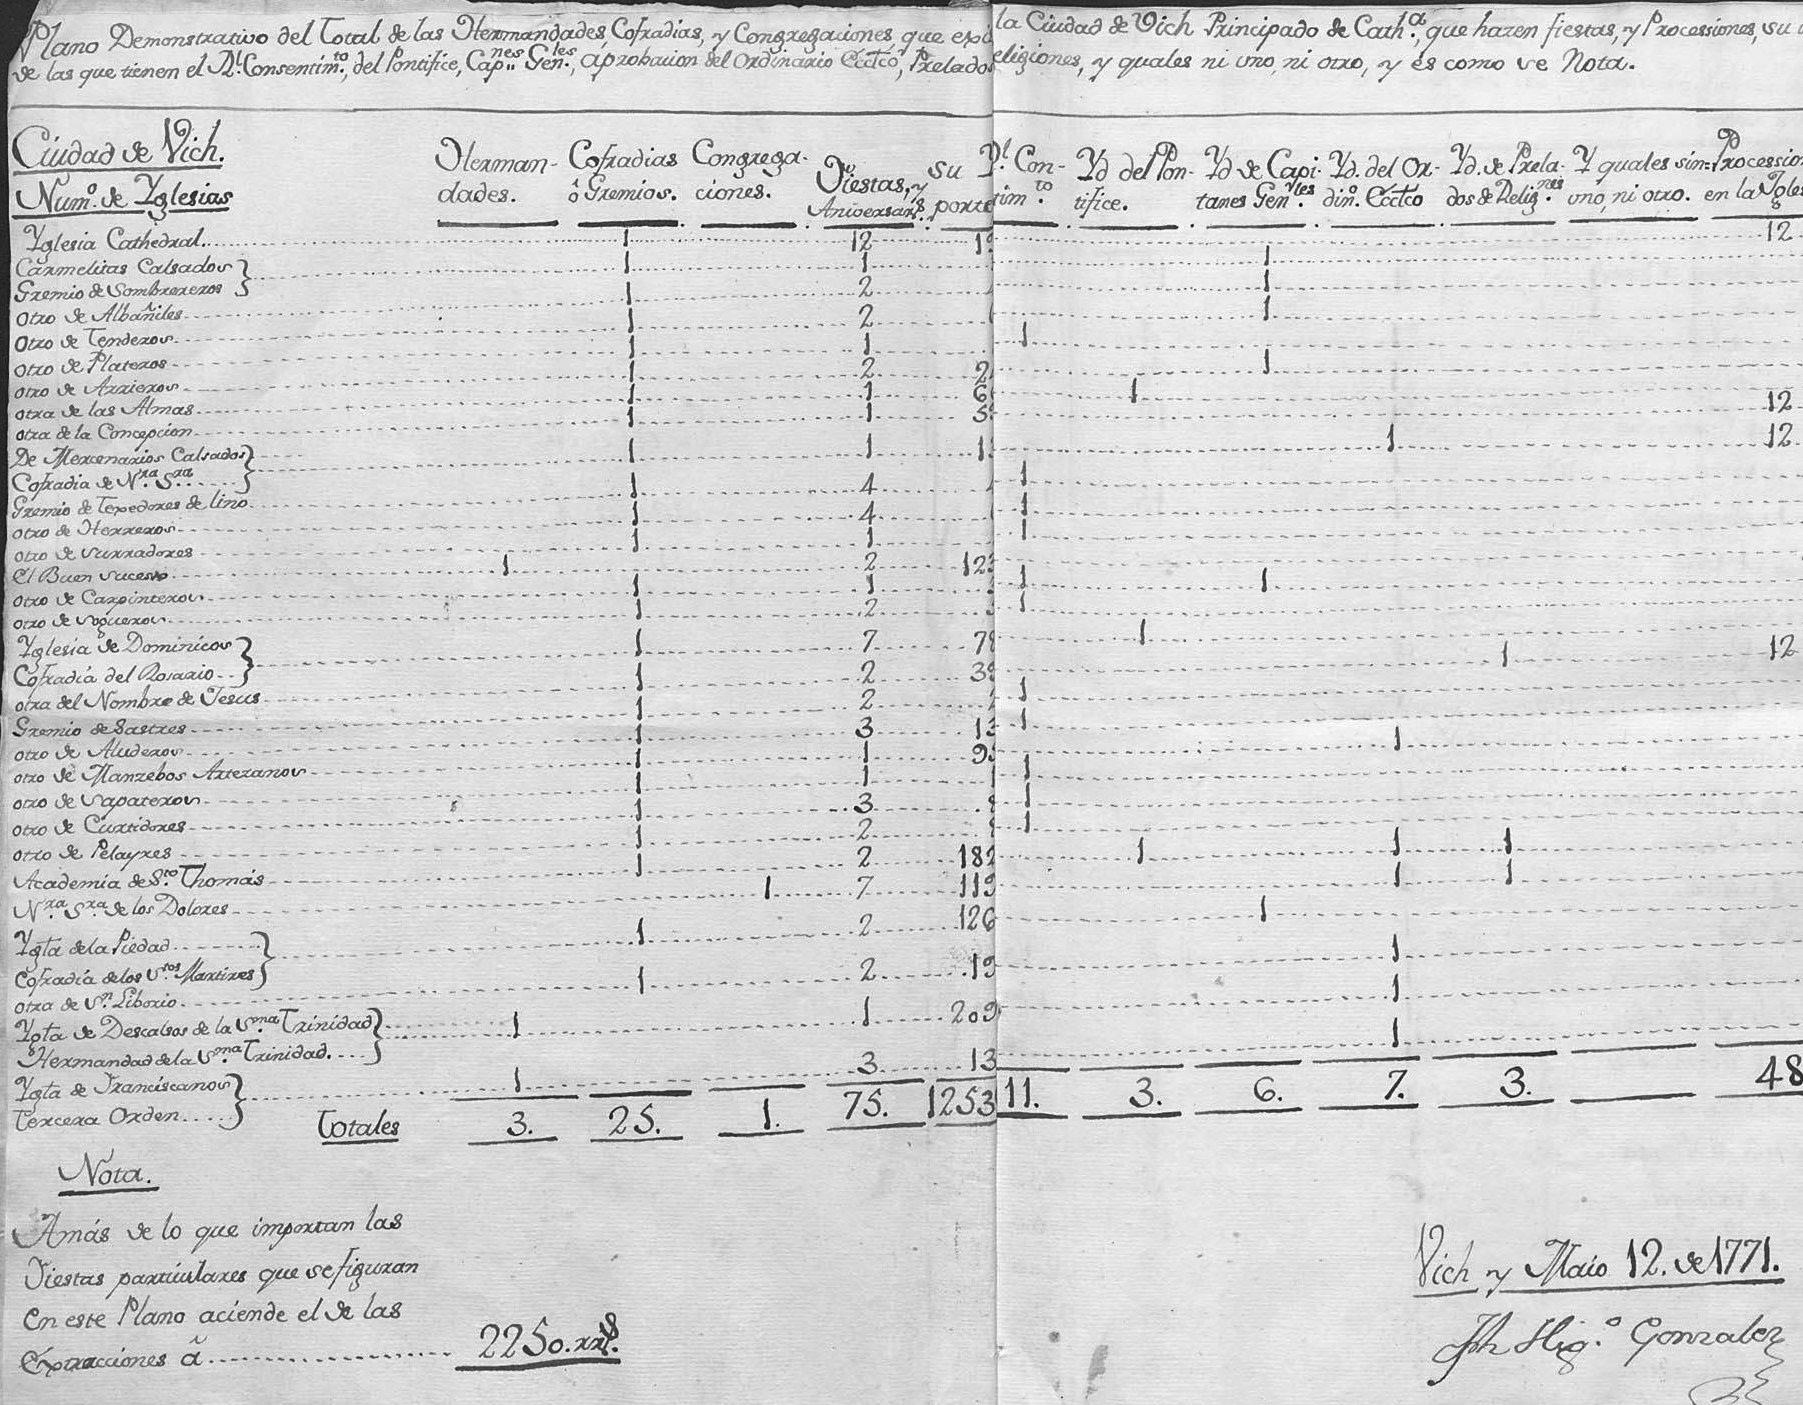 Plano Demonstrativo del Total de las Hermandades Cofradias, y Congregaciones que la Ciudad de Vich Principado de Cath.ª, que hazen fiestas, y Processiones, su
de las que tienen el Rl. Consentim.to, del Pontifice, Cap.nes Gen.les, aprobacion del Ordinario Ecctco, Prelados eligiones, y quales ni uno, ni otro, y és como se Nota.
Ciudad de Vich.
Num.º de Yglesias
Herman-dades.
Cofradias ô Gremios.
Congrega-ciones.
Fiestas, y Aniversar.s
su porte
Rl. Con-tim.to
Yd del Pon-tifice.
Yd de Capi-tanes Gen.les
Yd. del Or-din.º Ecctco
Yd. de Prela-dos de Relig.nes
Y quales sin uno, ni otro.
Procession en la Ygles
Yglesia Cathedral 1 12 12
Carmelitas Calsados 1 1 1
Gremio de Sombrereros 1 2 1
Otro de Albañiles 1 2 1
Otro de Tenderos 1 1 1
otro de Plateros 1 2 2 1
otro de Arrieros 1 1 6 1
otra de las Almas 1 1 5 12
otra de la Concepcion 1 1 1 12
De Mercenarios Calsados
Cofradia de N.ra S.ra 1 4 1
Gremio de Texedores de lino 1 4 1
otro de Herreros 1 1 1
otro de Surradores
El Buen Suceso 1 2 123
otro de Carpinteros 1 1 1 1
otro de Sogueros 1 2 1
Yglesia de Dominicos 1 7 78 1
Cofradiá del Rosario 1 2 39 1 12
otra del Nombre de Jesus 1 2 1
Gremio de Sastres 1 3 13 1
otro de Aluderos 1 1 95 1
otro de Manzebos Artezanos 1 1 1
otro de Sapateros 1 3 1
otro de Curtidores 1 2 1
otro de Pelayres 1 2 182 1 1 1
Academia de S.to Thomás 1 7 119 1 1
N.ra S.ra de los Dolores 2 126 1
Ygta de la Piedad 1
Cofradía de los S.tos Martires 1 2 19 1
otra de S.n Liborio 1
Ygta de Descalsos de la S.ma Trinidad 1 1 209
Hermandad de la S.ma Trinidad. 3 13 1
Ygta de Franciscanos 1
Tercera Orden
Totales 3. 25. 1. 75. 1253 11. 3. 6. 7. 3. 48
Nota.
Amás de lo que importan las
Fiestas particulares que se figuran
En este Plano aciende el de las
Extracciones â 2250.rr.s
Vich y Maio 12. de 1771.
Gonzalez